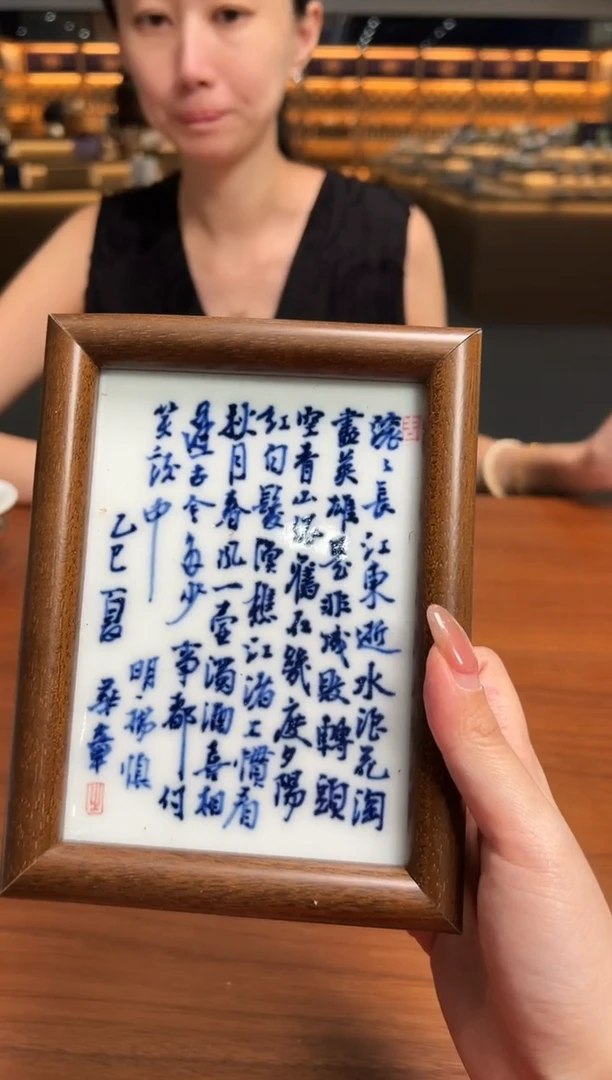 滚〻長江東逝水浪花淘
盡英雄是非成敗轉頭
空青山依舊在幾度夕陽
紅白髮漁樵江渚上慣看
秋月春風一壺濁酒喜相
逢古今多少事都付
笑談中
明·楊慎
乙巳夏 華章